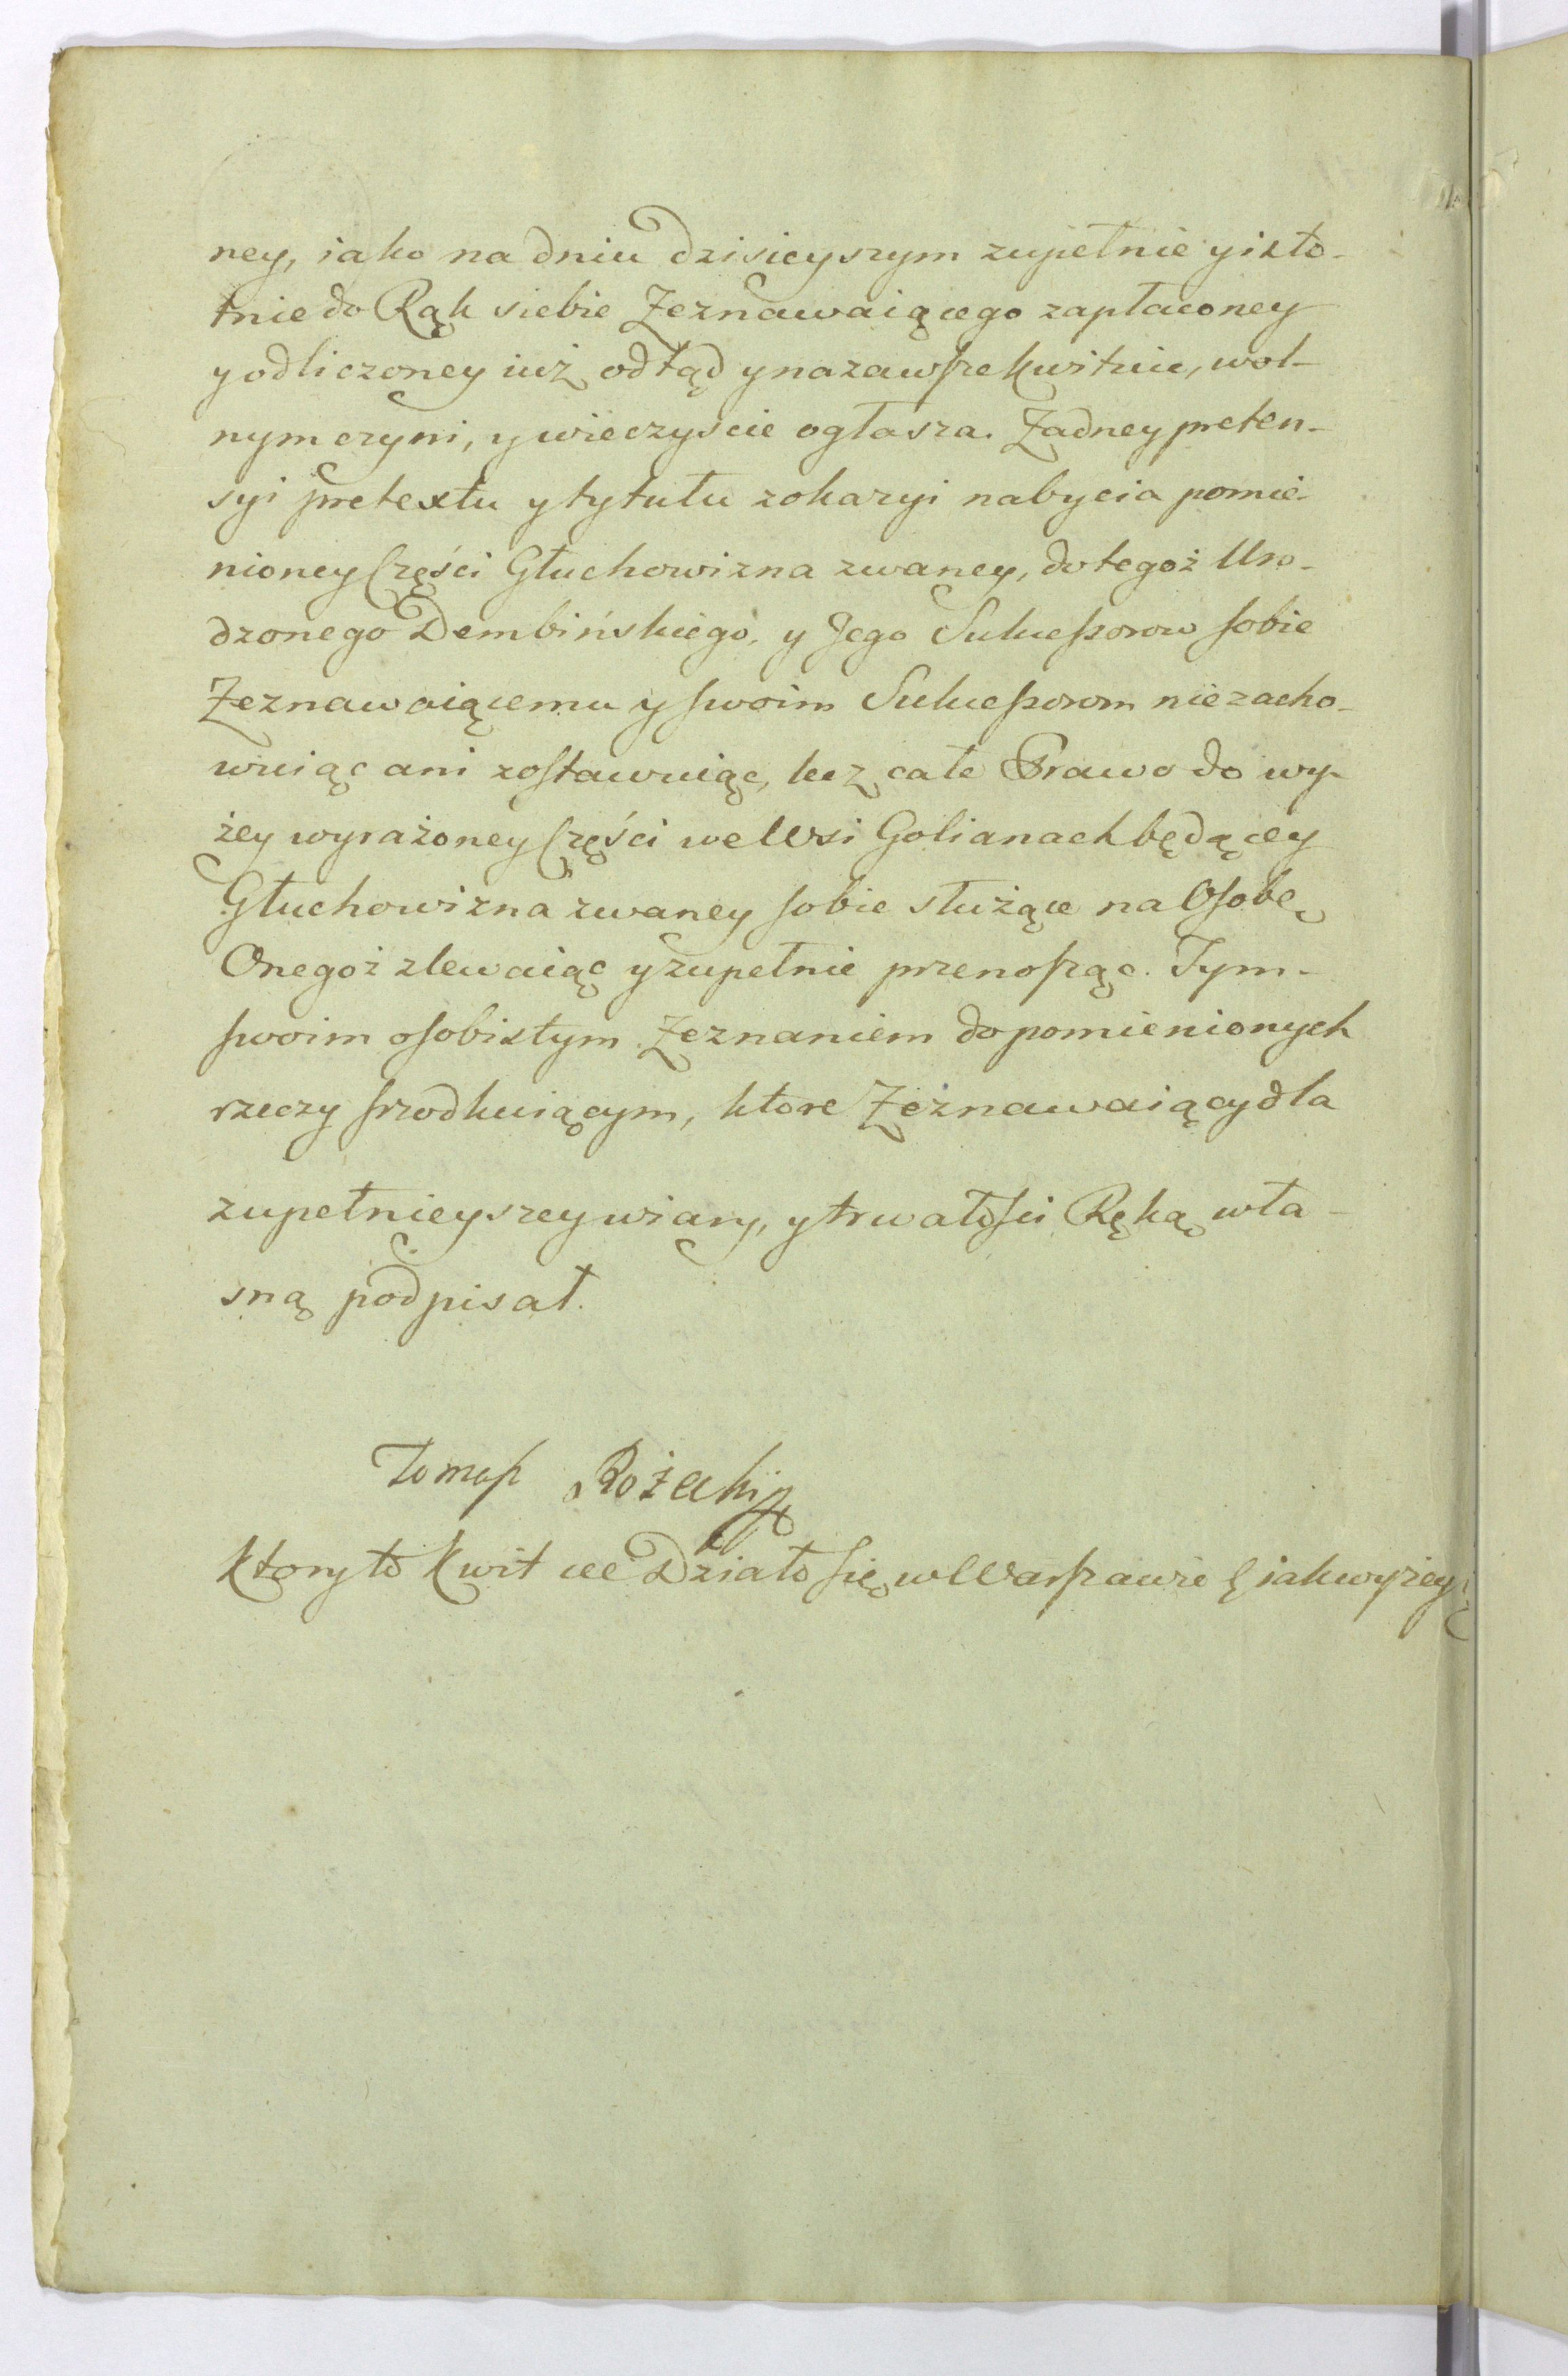 ney, iako na dniu dzisieyszym zupełnie y isto-
tnie do Rąk siebie Zeznawaiącego zapłaconey
y odliczoney iuż odtąd y na zawsze kwituie, wol-
nym czyni, y wieczyście ogłasza. Żadney preten-
syi pretextu y tytułu z okazyi nabycia pomie-
nioney Części Głuchowizna zwaney, do tegoż Uro-
dzonego Dembińskiego, y Jego Sukcessorow sobie
Zeznawaiącemu y swoim Sukcessorom nie zacho-
wuiąc ani zostawuiąc, lecz całe Prawo do wy-
żey wyrażoney Części we Wsi Golianach będącey
Głuchowizna zwaney sobie służące na Osobę
Onegoż zlewaiąc y zupełnie przenosząc. Tym-
swoim osobistym Zeznaniem do pomienionych
rzeczy srzodkuiącym, ktore Zeznawaiący dla
zupełnieyszey wiary, y trwałości Ręką wła-
sną podpisał.
Tomasz Rożecki
Ktory to Kwit etc Działo się w Warszawie jak wyżey